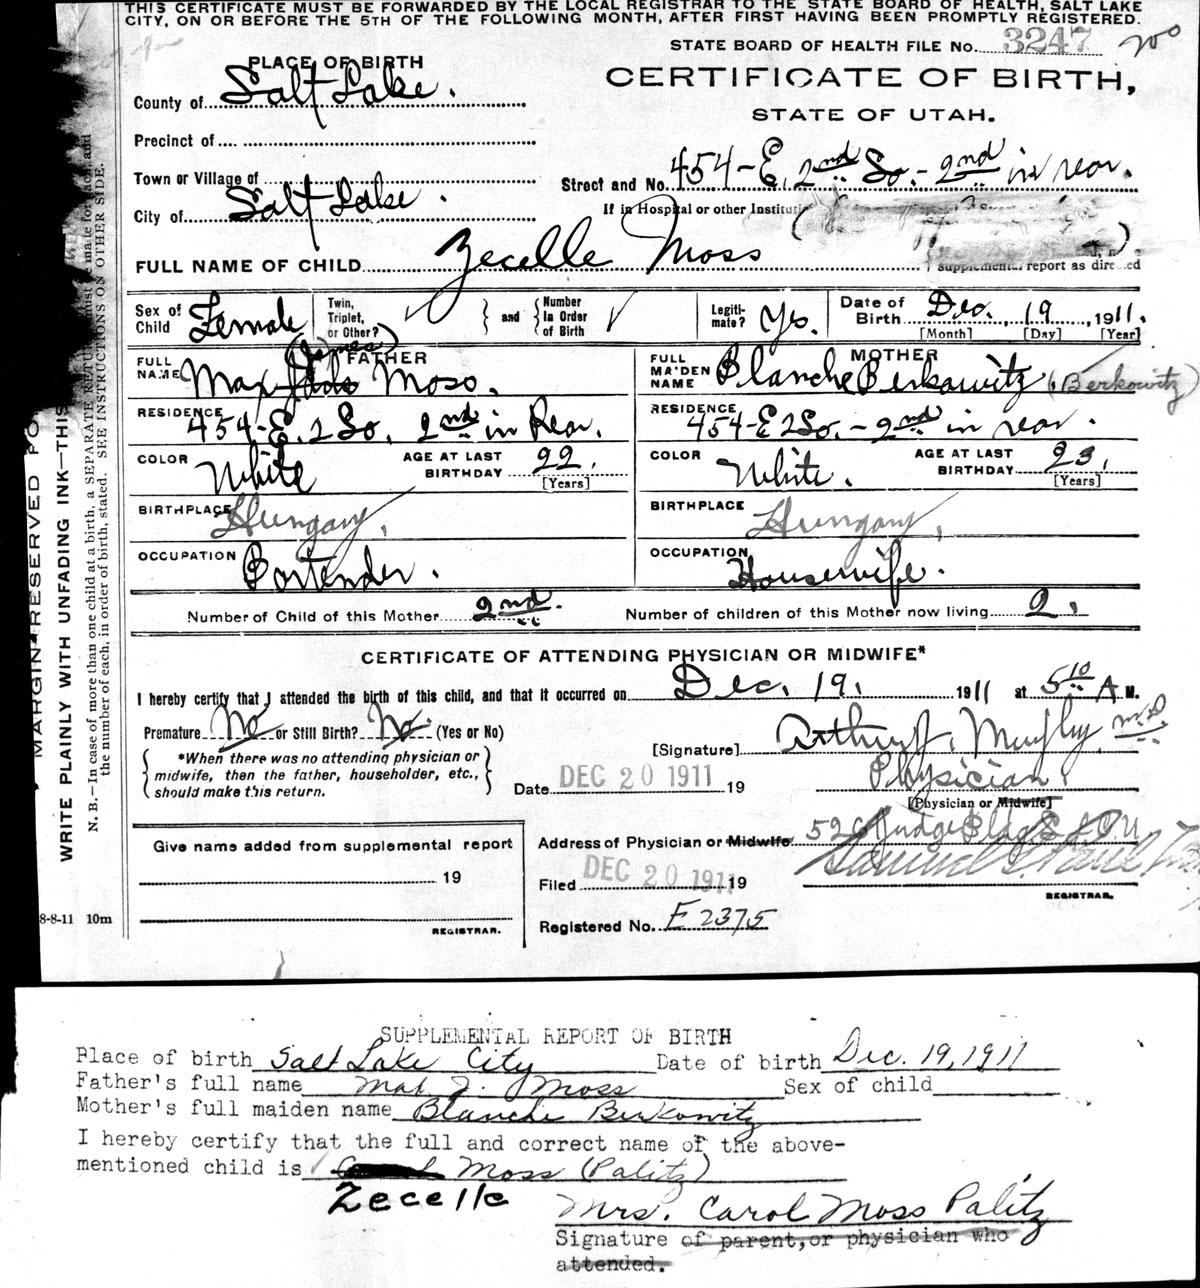 THIS CERTIFICATE MUST BE FORWARDED BY THE LOCAL REGISTRAR TO THE STATE BOARD OF HEALTH, SALT LAKE
CITY, ON OR BEFORE THE 5TH OF THE FOLLOWING MONTH, AFTER FIRST HAVING BEEN PROMPTLY REGISTERED.
STATE BOARD OF HEALTH FILE No. 3247
PLACE OF BIRTH
CERTIFICATE OF BIRTH,
County of Salt Lake.
STATE OF UTAH.
Precinct of
Town or Village of
Street and No. 454-E. 2nd So. - 2nd in rear.
City of Salt Lake.
If in Hospital or other
FULL NAME OF CHILD Zecelle Moss
supplemental report as directed
Sex of Child Female
Twin, Triplet, or Other?
and
Number In Order of Birth
Legiti-mate? Yes.
Date of Birth Dec. 19, 1911.
[Month] [Day] [Year]
FATHER
FULL NAME Max (James) Moss.
MOTHER
FULL MAIDEN NAME Blanche Berkowitz. (Berkowitz)
RESIDENCE 454-E. 2 So. 2nd in Rear.
RESIDENCE 454-E 2 So. - 2nd in rear.
COLOR White
AGE AT LAST BIRTHDAY 22.
[Years]
COLOR White.
AGE AT LAST BIRTHDAY 23.
[Years]
BIRTHPLACE Hungary.
BIRTHPLACE Hungary.
OCCUPATION Bartender.
OCCUPATION Housewife.
Number of Child of this Mother 2nd.
Number of children of this Mother now living 2.
CERTIFICATE OF ATTENDING PHYSICIAN OR MIDWIFE*
I hereby certify that I attended the birth of this child, and that it occurred on Dec. 19. 1911 at 5 10 A M.
Premature No or Still Birth? No. (Yes or No)
[Signature] Arthur J. Murphy M.D.
*When there was no attending physician or
midwife, then the father, householder, etc.,
should make this return.
Date DEC 20 1911 19
Physician.
[Physician or Midwife]
Give name added from supplemental report
Address of Physician or Midwife 526 Judge Bldg
19
Filed DEC 20 1911 19
REGISTRAR.
Registered No. E 2375
REGISTRAR.
MARGIN RESERVED FO
WRITE PLAINLY WITH UNFADING INK—THIS
N. B.—In case of more than one child at a birth, a SEPARATE RETURN must be made for each, and
the number of each, in order of birth, stated. SEE INSTRUCTIONS ON OTHER SIDE.
8-8-11 10m
SUPPLEMENTAL REPORT OF BIRTH
Place of birth Salt Lake City Date of birth Dec. 19, 1911
Father's full name Max J. Moss Sex of child
Mother's full maiden name Blanche Berkowitz
I hereby certify that the full and correct name of the above-
mentioned child is Carol Moss (Palitz)
Zecelle
Mrs. Carol Moss Palitz
Signature of parent, or physician who
attended.